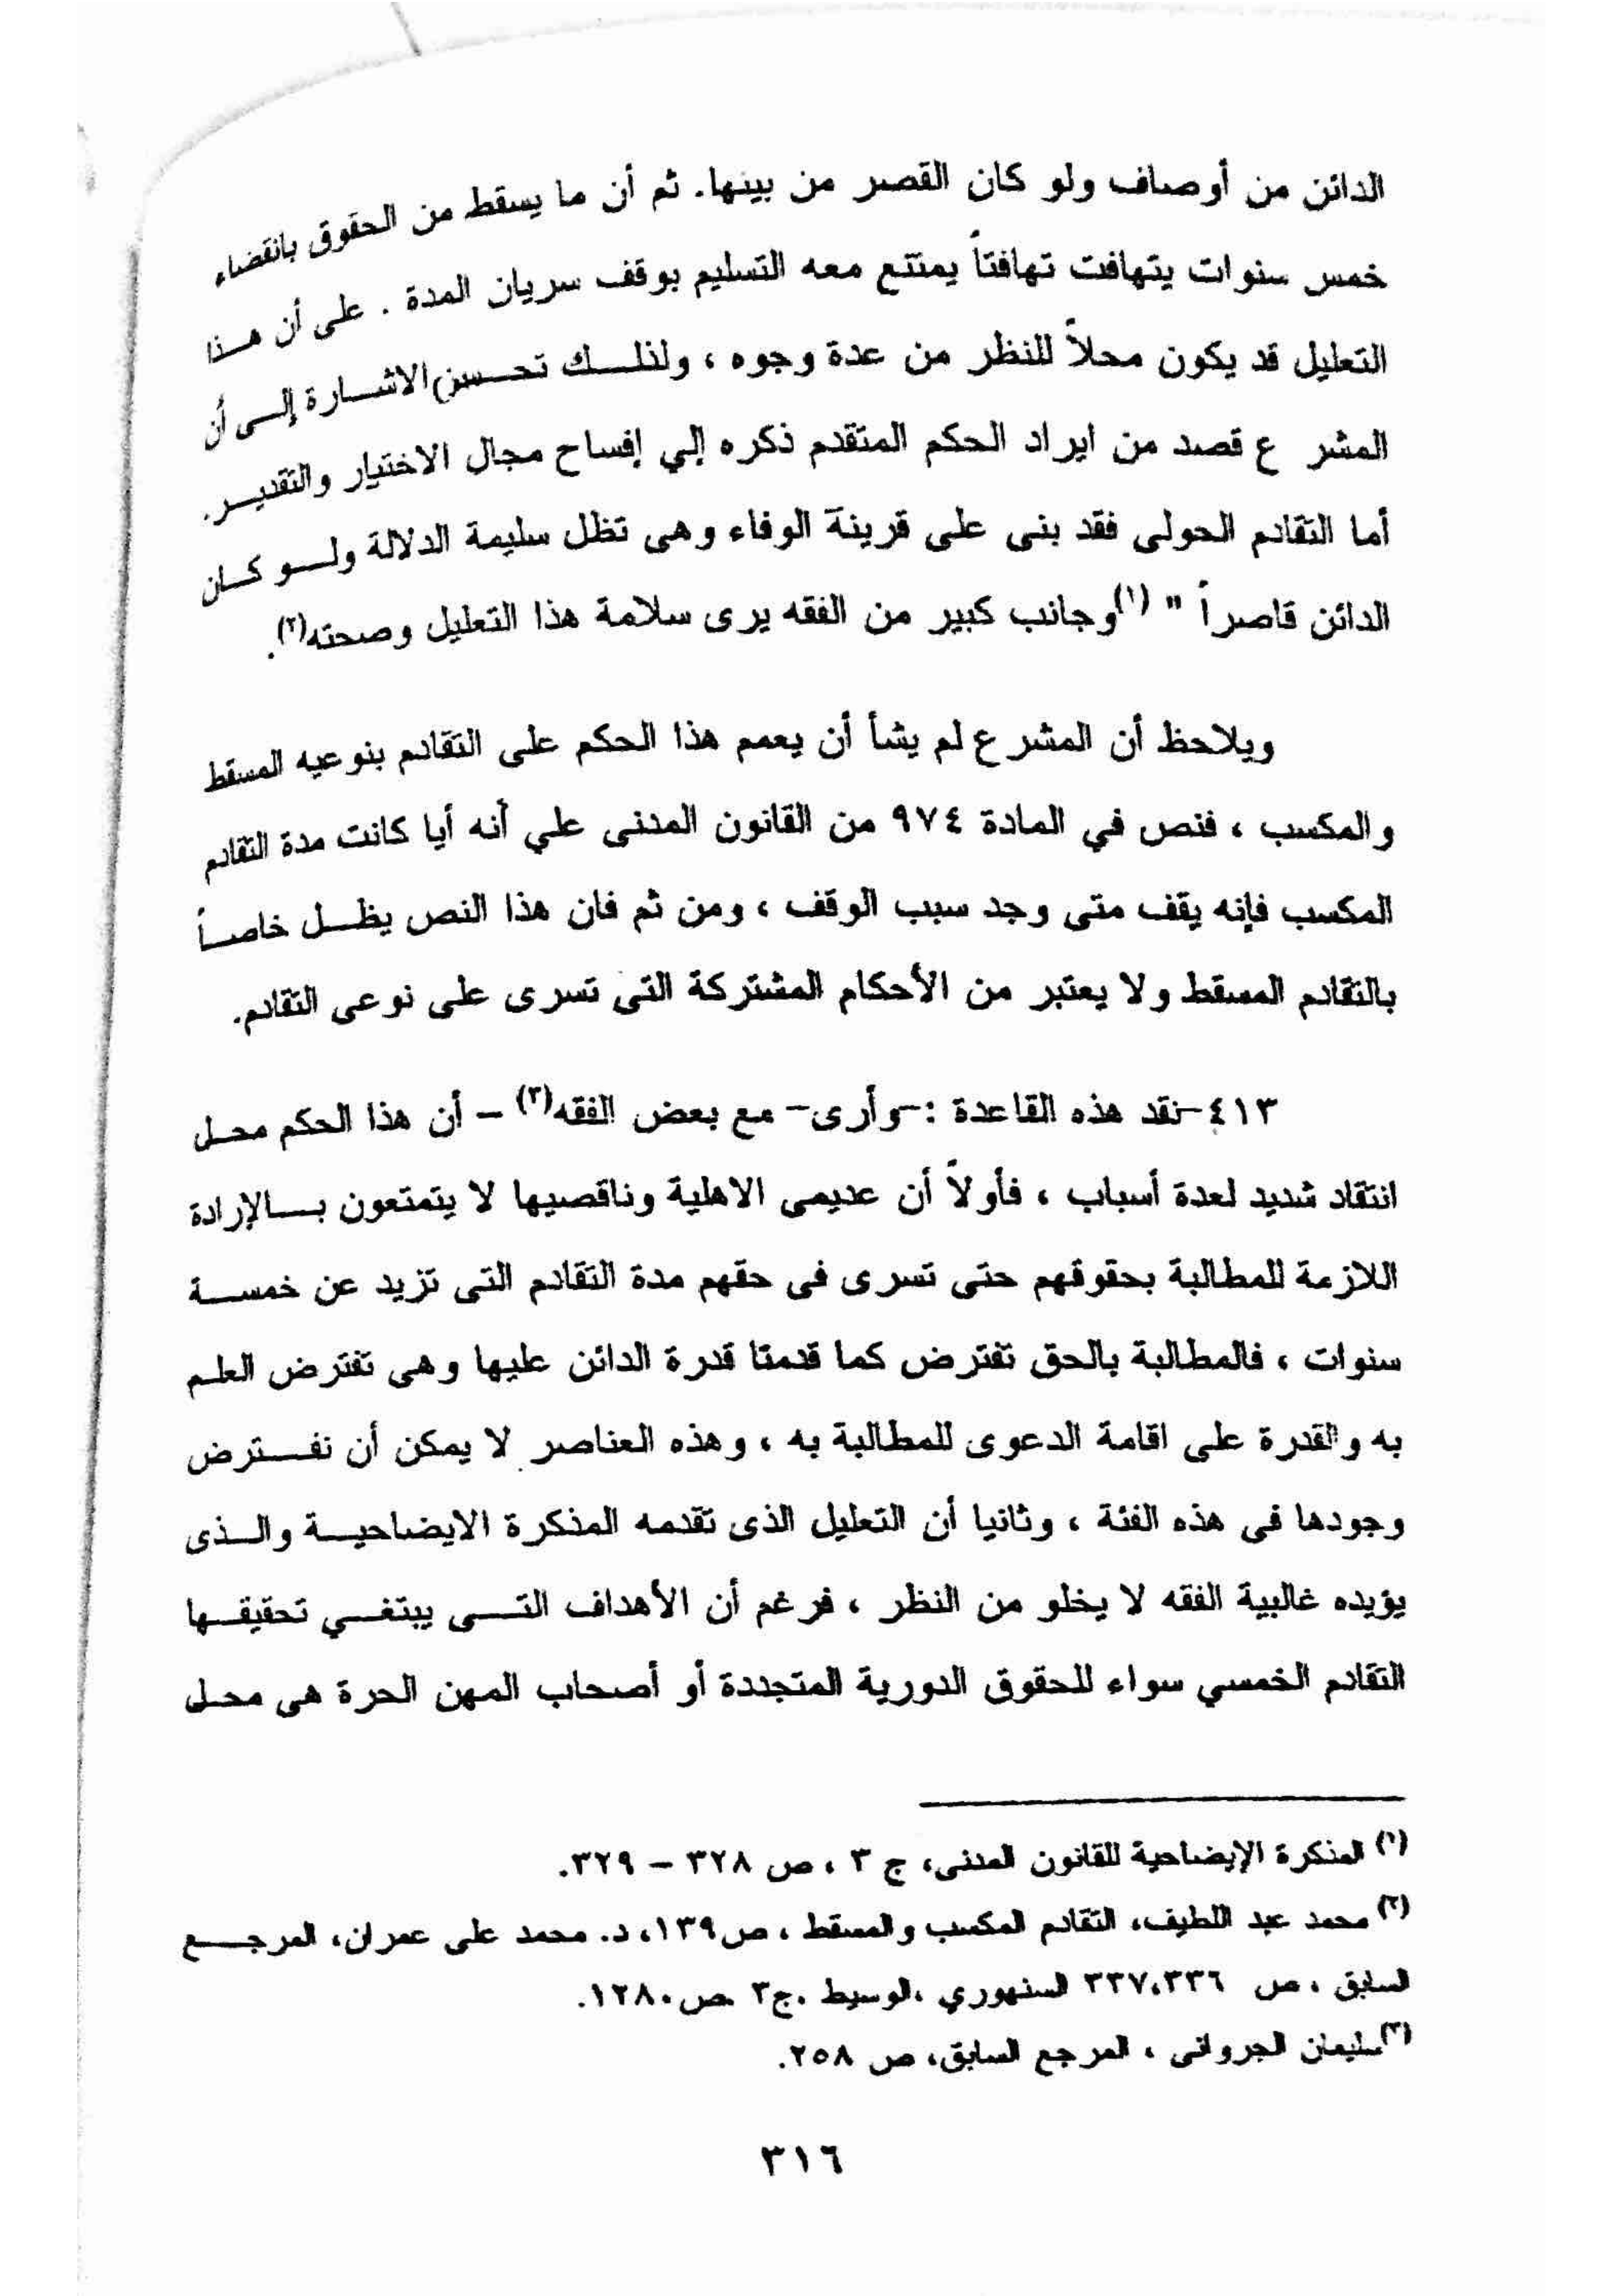 الدائن من أوصاف ولو كان القصر من بينها. ثم أن ما يسقط من الحقوق بانقضاء
خمس سنوات يتهافت تهافتاً يمتنع معه التسليم بوقف سريان المدة . على أن هذا
التعليل قد يكون محلاً للنظر من عدة وجوه ، ولذلك تحسن الاشارة إلى أن
المشرع قصد من ايراد الحكم المتقدم ذكره إلي إفساح مجال الاختيار والتقدير.
أما التقادم الحولى فقد بنى على قرينة الوفاء وهى تظل سليمة الدلالة ولو كان
الدائن قاصراً " (١) وجانب كبير من الفقه يرى سلامة هذا التعليل وصحته(٢).
ويلاحظ أن المشرع لم يشأ أن يعمم هذا الحكم على التقادم بنوعيه المسقط
والمكسب ، فنص في المادة ٩٧٤ من القانون المدنى علي أنه أيا كانت مدة التقادم
المكسب فإنه يقف متى وجد سبب الوقف ، ومن ثم فان هذا النص يظل خاصاً
بالتقادم المسقط ولا يعتبر من الأحكام المشتركة التى تسرى على نوعى التقادم.
٤١٣-نقد هذه القاعدة :-وأرى- مع بعض الفقه(٣) - أن هذا الحكم محل
انتقاد شديد لعدة أسباب ، فأولاً أن عديمى الاهلية وناقصيها لا يتمتعون بالإرادة
اللازمة للمطالبة بحقوقهم حتى تسرى فى حقهم مدة التقادم التى تزيد عن خمسة
سنوات ، فالمطالبة بالحق تفترض كما قدمتا قدرة الدائن عليها وهى تفترض العلم
به والقدرة على اقامة الدعوى للمطالبة به ، وهذه العناصر لا يمكن أن نفترض
وجودها فى هذه الفئة ، وثانيا أن التعليل الذى تقدمه المذكرة الايضاحية والذى
يؤيده غالبية الفقه لا يخلو من النظر ، فرغم أن الأهداف التى يبتغي تحقيقها
التقادم الخمسي سواء للحقوق الدورية المتجددة أو أصحاب المهن الحرة هى محل
(١) المذكرة الإيضاحية للقانون المدنى، ج ٣ ، ص ٣٢٨ - ٣٢٩.
(٢) محمد عبد اللطيف، التقادم المكسب والمسقط ، ص١٣٩، د. محمد على عمران، المرجع
السابق ، ص ٣٣٧،٣٣٦ السنهوري ،الوسيط ،ج٣ ص١٢٨٠.
(٣) سليمان الجروانى ، المرجع السابق، ص ٢٥٨.
٣١٦